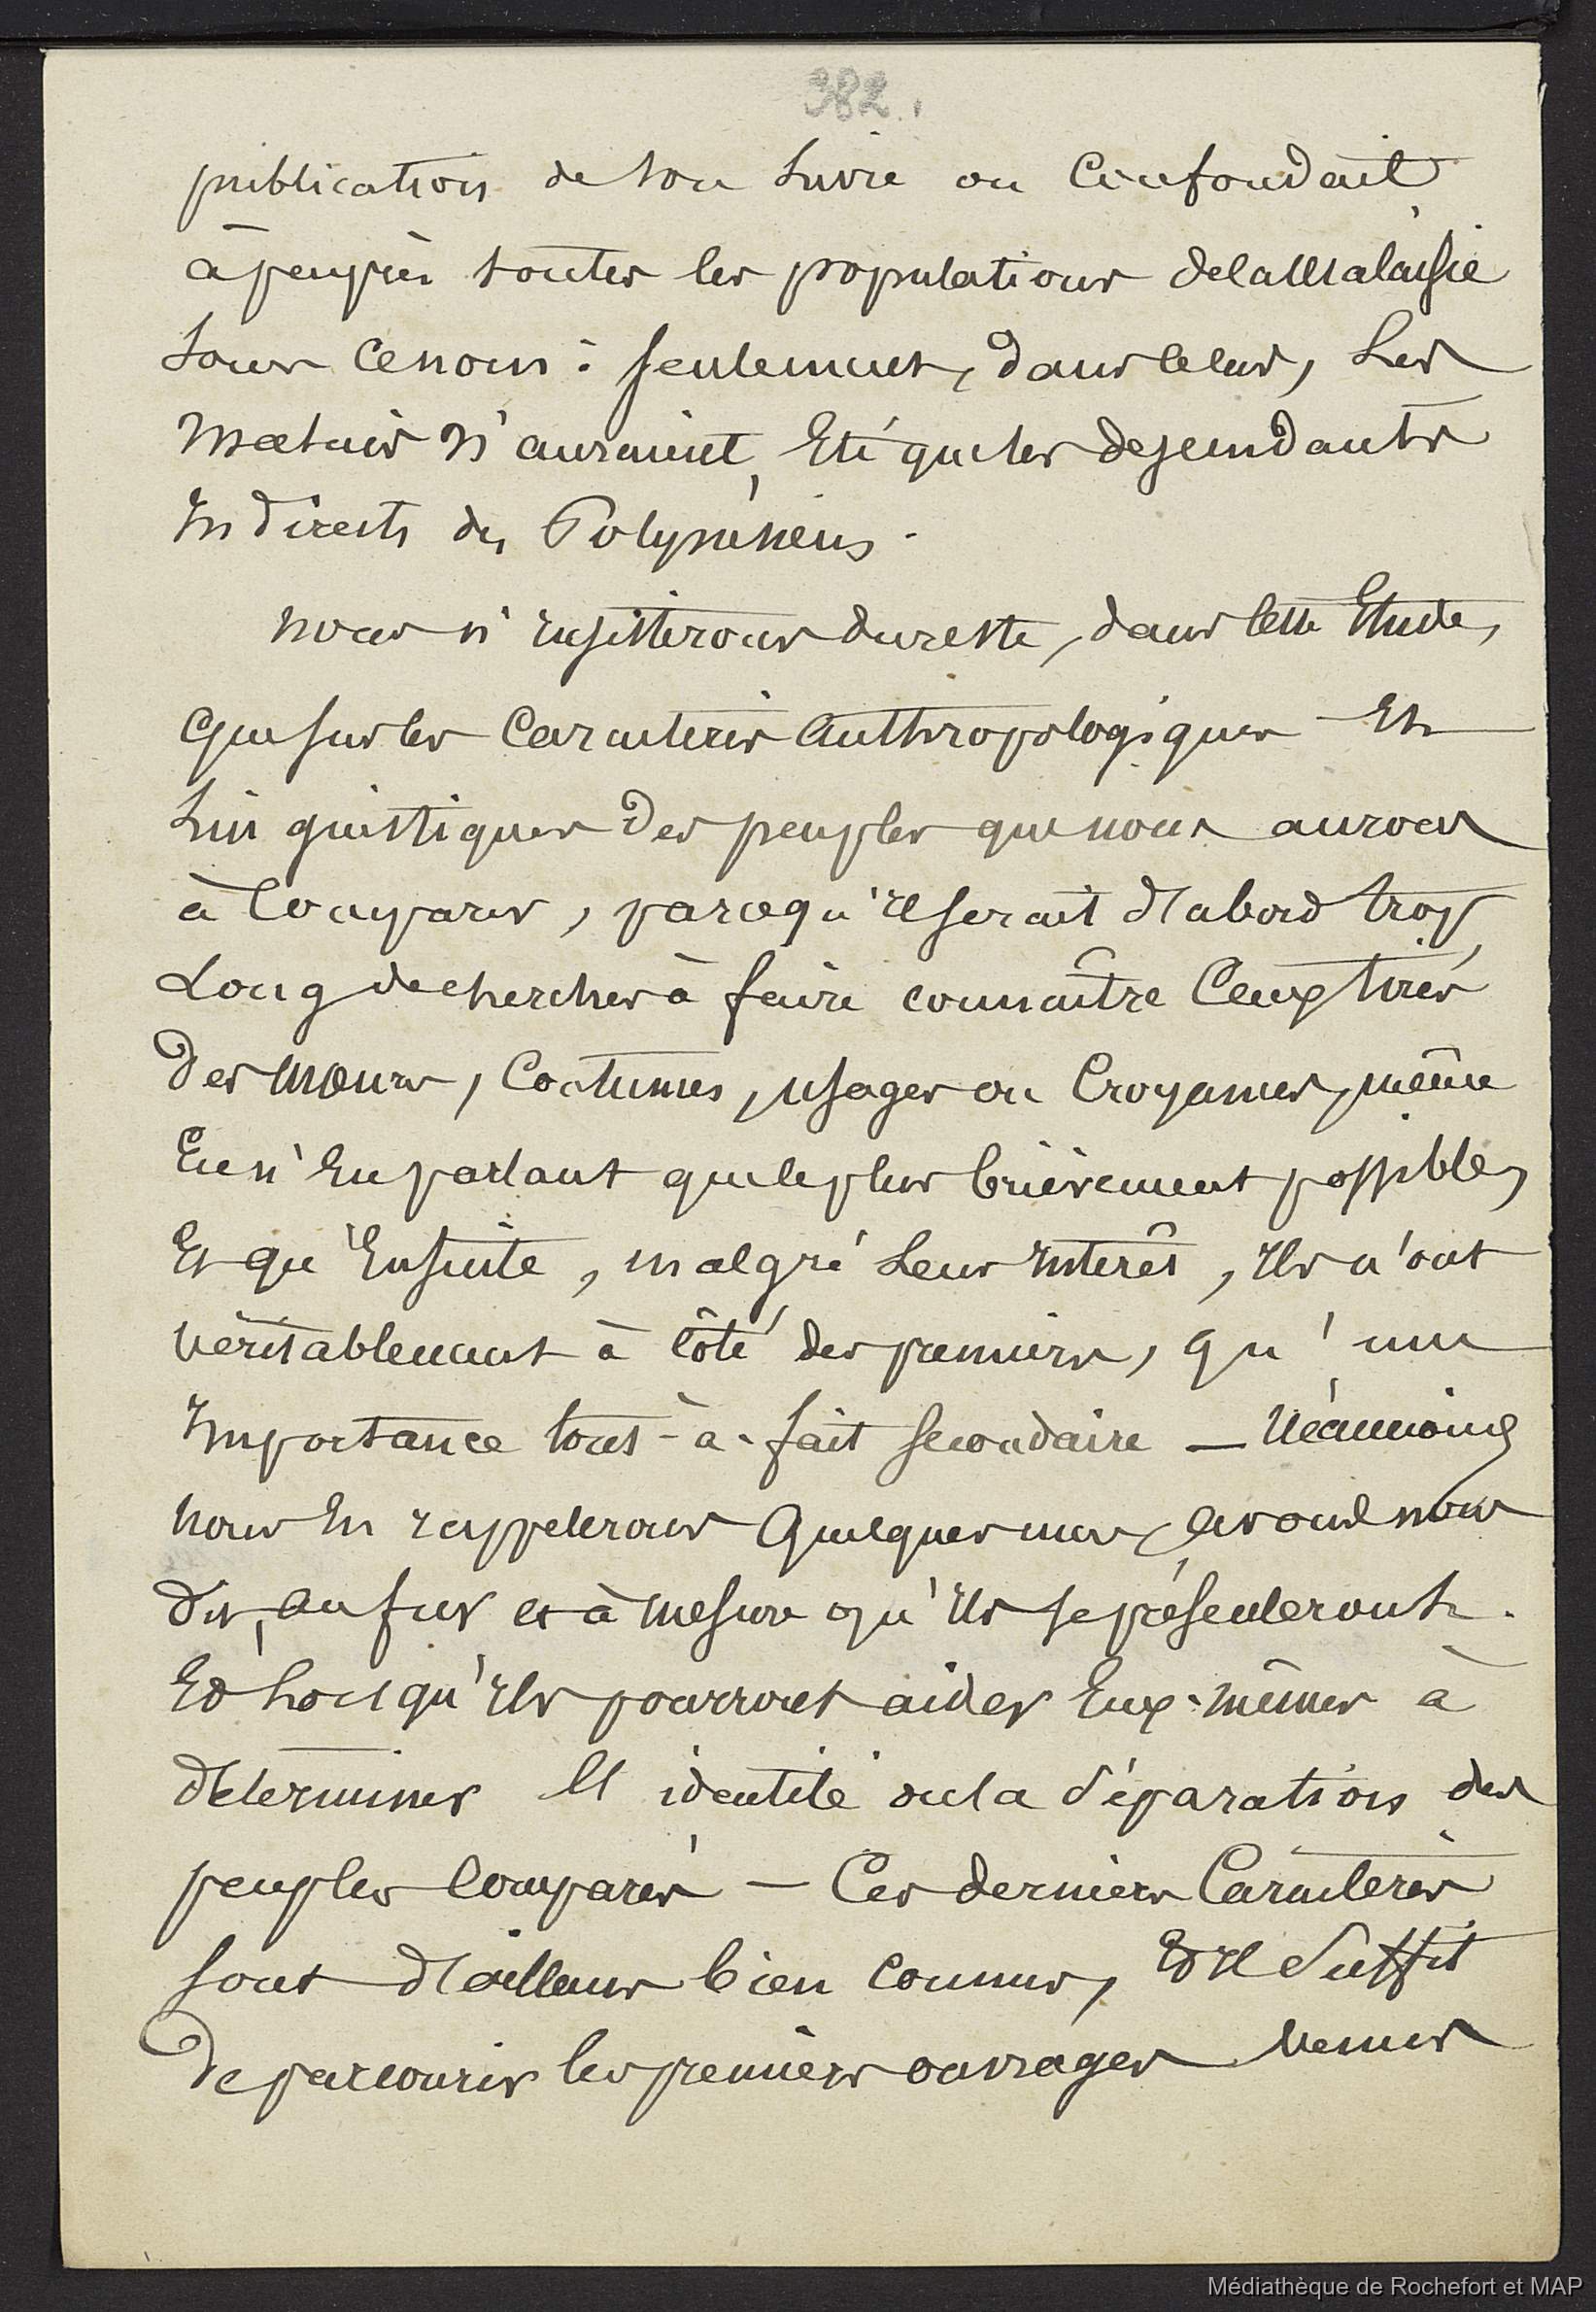 382.
publication de son livre on confondait
à peu près toutes les populations de la Malaisie
sous ce nom : seulement, dans ce cas, les
n'auraient été que les descendants
indirects des Polynésiens.
Nous n'insisterons du reste, dans cette Etude,
que sur les caractères anthropologiques et
linguistiques des peuples que nous aurons
à comparer, parcequ'il serait d'abord trop
long de chercher à faire connaître ceux tirés
des mœurs, coutumes, usages ou croyances, même
en n'en parlant que le plus brièvement possible,
et qu'ensuite, malgré leur intérêt, ils n'ont
véritablement à côté des premiers, qu'une
importance tout-à-fait secondaire — Néanmoins
nous en rappellerons quelques uns, avons nous
dit, au fur et à mesure qu'ils se présenteront.
Et lorsqu'ils pourront aider eux-mêmes à
déterminer l'identité ou la séparation des
peuples comparés — Ces derniers caractères
sont d'ailleurs bien connus, et il suffit
de parcourir les premiers ouvrages venus
Médiathèque de Rochefort et MAP